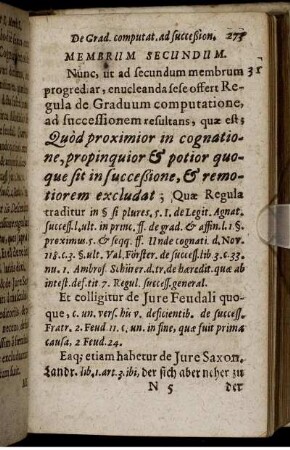 De Grad. computat. ad succession. 273
MEMBRUM SECUNDUM.
Nunc, ut ad secundum membrum 31
progrediar, enucleanda sese offert Re-
gula de Graduum computatione,
ad successionem resultans, quæ est;
Quòd proximior in cognatio-
ne, propinquior & potior quo-
que sit in successione, & remo-
tiorem excludat; Quæ Regula
traditur in § si plures, 5. I. de Legit. Agnat.
success. l. ult. in princ. ff. de grad. & affin. l. 1 §.
proximus. 5. & seqq. ff. Unde cognati. d. Nov.
118. c. 3. §. ult. Val. Förster. de success. lib 3. c. 33.
nu. 1. Ambros. Schürer. d. tr. de hæredit. quæ ab
intest. def. tit 7. Regul. success. general.
Et colligitur de Jure Feudali quo-
que, c. un. vers. his v. deficientib. de success.
Fratr. 2. Feud 11. c. un. in fine, quæ fuit prima
causa, 2 Feud. 24.
Eaq; etiam habetur de Jure Saxon.
Landr. lib. 1. art. 3. ibi, der sich aber neher zu
N 5 der